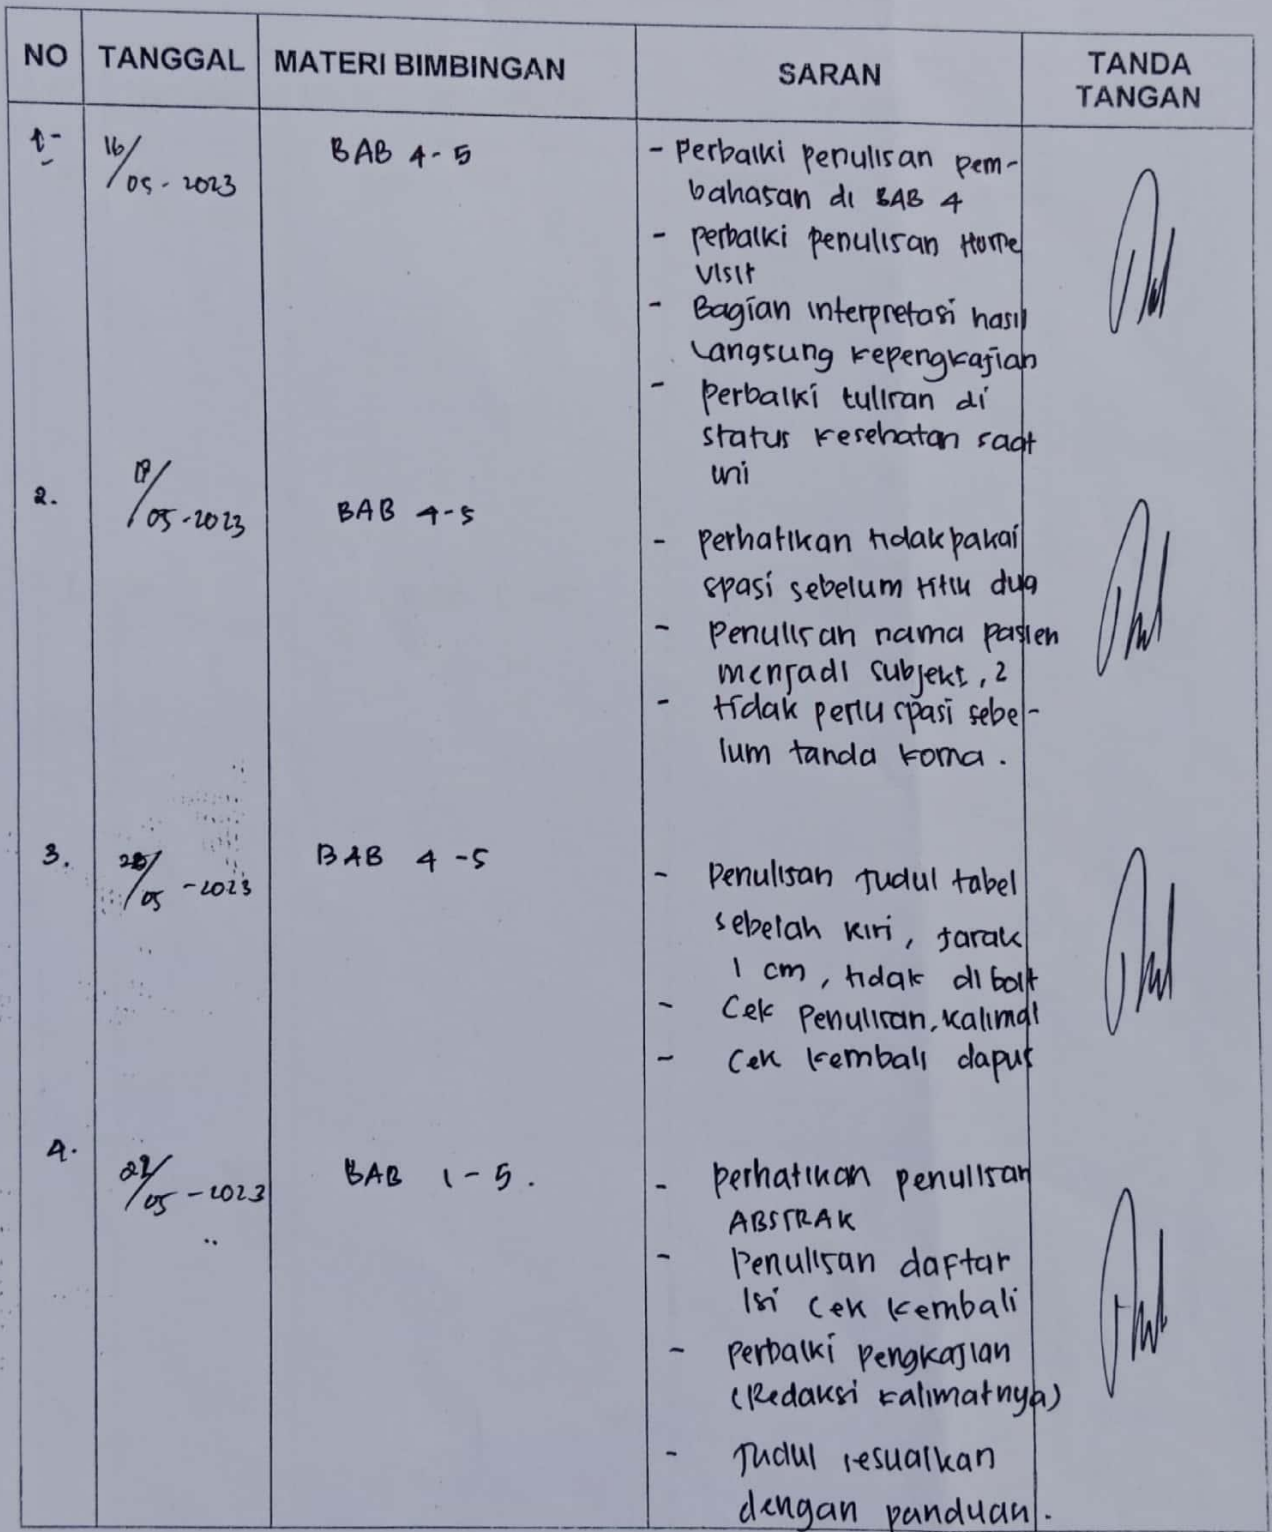 NO TANGGAL MATERI BIMBINGAN SARAN TANDA TANGAN
1- 16/05-2023 BAB 4-5 - Perbaiki penulisan pem-
bahasan di BAB 4
- perbaiki penulisan Home
visit
- Bagian interpretasi hasil
Langsung kepengkajian
- Perbaiki tulisan di
status kesehatan saat
ini
2. /05-2023 BAB 4-5
- perhatikan tidak pakai
spasi sebelum titik dua
- Penulisan nama pasien
menjadi subjekt, 2
- tidak perlu spasi sebe-
lum tanda koma.
3. /05-2023 BAB 4-5
- Penulisan Judul tabel
sebelah kiri, jarak
1 cm, tidak di bolt
- Cek Penulisan, kalimat
- Cek kembali dapus
4. /05-2023 BAB 1-5.
- perhatikan penulisan
ABSTRAK
- Penulisan daftar
Isi cek kembali
- perbaiki pengkajian
(Redaksi kalimatnya)
- Judul sesuaikan
dengan panduan.